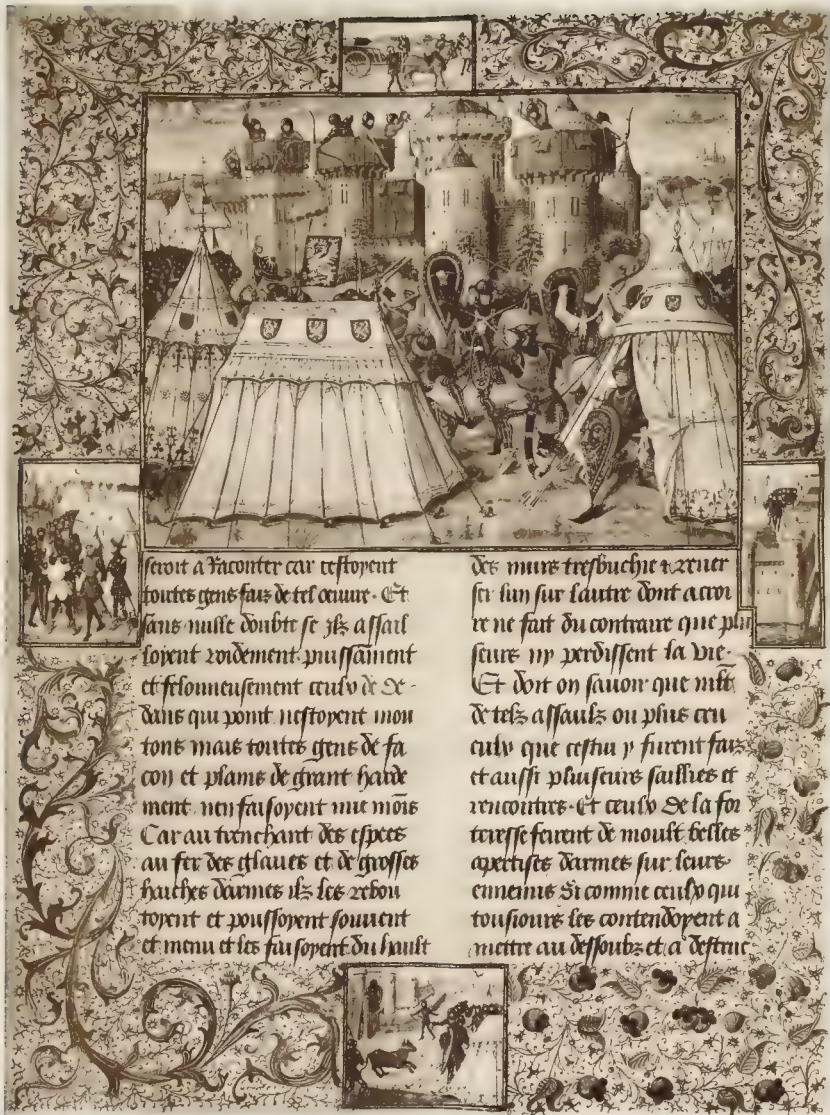 seroit a Raconter car cestoyent
toutes gens fais de tel œuure · Et
sans nulle doubte se ilz assail
loyent roidement puissãment
et felonneusement ceulx de de-
dans qui point nestoyent mou
tons mais toutes gens de fa
con et plains de grant harde
ment nen faisoyent mie mois
Car au trenchant des espees
au fer des glaues et de grosses
haches darmes ilz les rebou
toyent et poussoyent souuent
et menu et les faisoyent du hault
des murs tresbuchie & reuer
ser lun sur lautre dont a croi
re ne fait du contraire que plu
seurs ny perdissent la vie ·
Et doit on sauoir que
de telz assaulz ou plus cru
eulx que cestui y furent fais
et aussi pluiseurs saillies et
rencontres · Et ceulx de la for
teresse feirent de moult belles
apertises darmes sur leurs
ennemis Si comme ceulx qui
tousiours les contendoyent a
mettre au dessoubz et a destruc